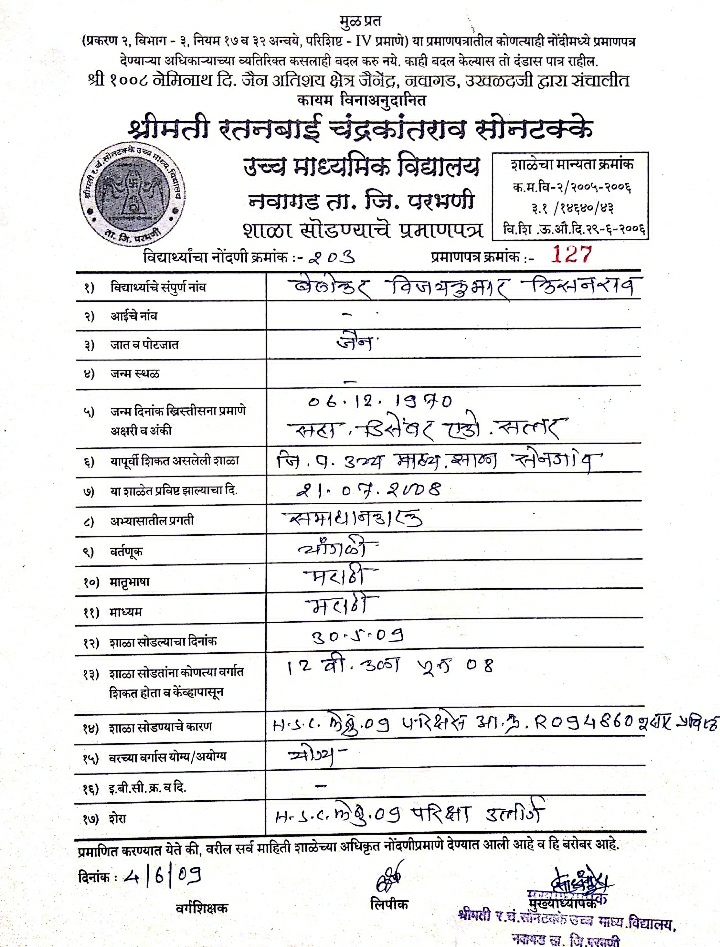 मुळ प्रत
(प्रकरण २, विभाग - ३, नियम १७ व ३२ अन्वये, परिशिष्ट - IV प्रमाणे) या प्रमाणपत्रातील कोणत्याही नोंदीमध्ये प्रमाणपत्र
देणाऱ्या अधिकाऱ्याच्या व्यतिरिक्त कसलाही बदल करु नये. काही बदल केल्यास तो दंडास पात्र राहील.
श्री १००८ नेमिनाथ दि. जैन अतिशय क्षेत्र जैनेंद्र, नवागड, उखळदजी द्वारा संचालीत
कायम विनाअनुदानित
श्रीमती रतनबाई चंद्रकांतराव सोनटक्के
उच्च माध्यमिक विद्यालय
नवागड ता. जि. परभणी
शाळा सोडण्याचे प्रमाणपत्र
शाळेचा मान्यता क्रमांक
क.म.वि-२/२००५-२००६
३.१ /१४६४०/४३
वि.शि .ऊ.औ.दि.२९-६-२००६
श्रीमती र.चं.सोनटक्के उच्च माध्य.विद्यालय,
ता. जि. परभणी
विद्यार्थ्यांचा नोंदणी क्रमांक :- २०३ प्रमाणपत्र क्रमांक :- 127
१) विद्यार्थ्याचे संपुर्ण नांव बेलोकर विजयकुमार किसनराव
२) आईचे नांव -
३) जात व पोटजात जैन
४) जन्म स्थळ -
५) जन्म दिनांक ख्रिस्तीसना प्रमाणे 06.12.1970
अक्षरी व अंकी सहा. डिसेंबर एकोणीसशे सत्तर
६) यापूर्वी शिकत असलेली शाळा जि. प. उच्च माध्य. शाळा सेनगांव
७) या शाळेत प्रविष्ट झाल्याचा दि. 21.07.2008
८) अभ्यासातील प्रगती समाधानकारक
९) वर्तणूक चांगली
१०) मातृभाषा मराठी
११) माध्यम मराठी
१२) शाळा सोडल्याचा दिनांक 30-5-09
१३) शाळा सोडतांना कोणत्या वर्गात 12 वी. जून 08
शिकत होता व केंव्हापासून
१४) शाळा सोडण्याचे कारण H.S.C. फेब्रु.09 परिक्षेस आ.क्र. R094860 नुसार प्रविष्ठ
१५) वरच्या वर्गास योग्य/अयोग्य योग्य
१६) इ.बी.सी.क्र.व दि. -
१७) शेरा H.S.C. फेब्रु.09 परिक्षा उत्तीर्ण
प्रमाणित करण्यात येते की, वरील सर्व माहिती शाळेच्या अधिकृत नोंदणीप्रमाणे देण्यात आली आहे व हि बरोबर आहे.
दिनांक : 4/6/09
वर्गशिक्षक लिपीक मुख्याध्यापक
मुख्याध्यापक
श्रीमती र.चं.सोनटक्के उच्च माध्य.विद्यालय,
नवागड ता. जि.परभणी